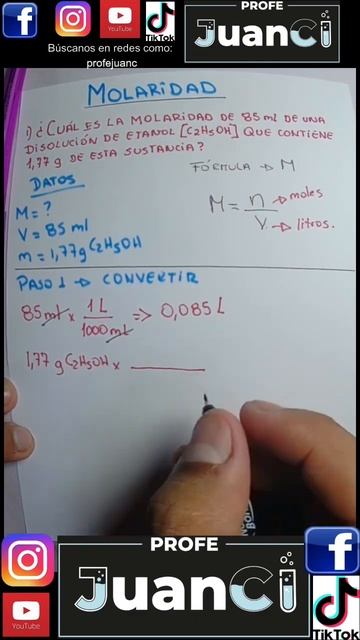 PROFE
JuanCi
YouTube
TikTok
Búscanos en redes como:
profejuanc
MOLARIDAD
1) ¿CUÁL ES LA MOLARIDAD DE 85 ml DE UNA
DISOLUCIÓN DE ETANOL [C2H5OH] QUE CONTIENE
1,77 g DE ESTA SUSTANCIA?
FÓRMULA → M
DATOS
M = ?
V = 85 ml
m = 1,77g C2H5OH
M = n → moles
V → litros.
PASO 1 → CONVERTIR
85 ml x 1L => 0,085 L
1000 ml
1,77 g C2H5OH x
PROFE
JuanCi
YouTube
TikTok